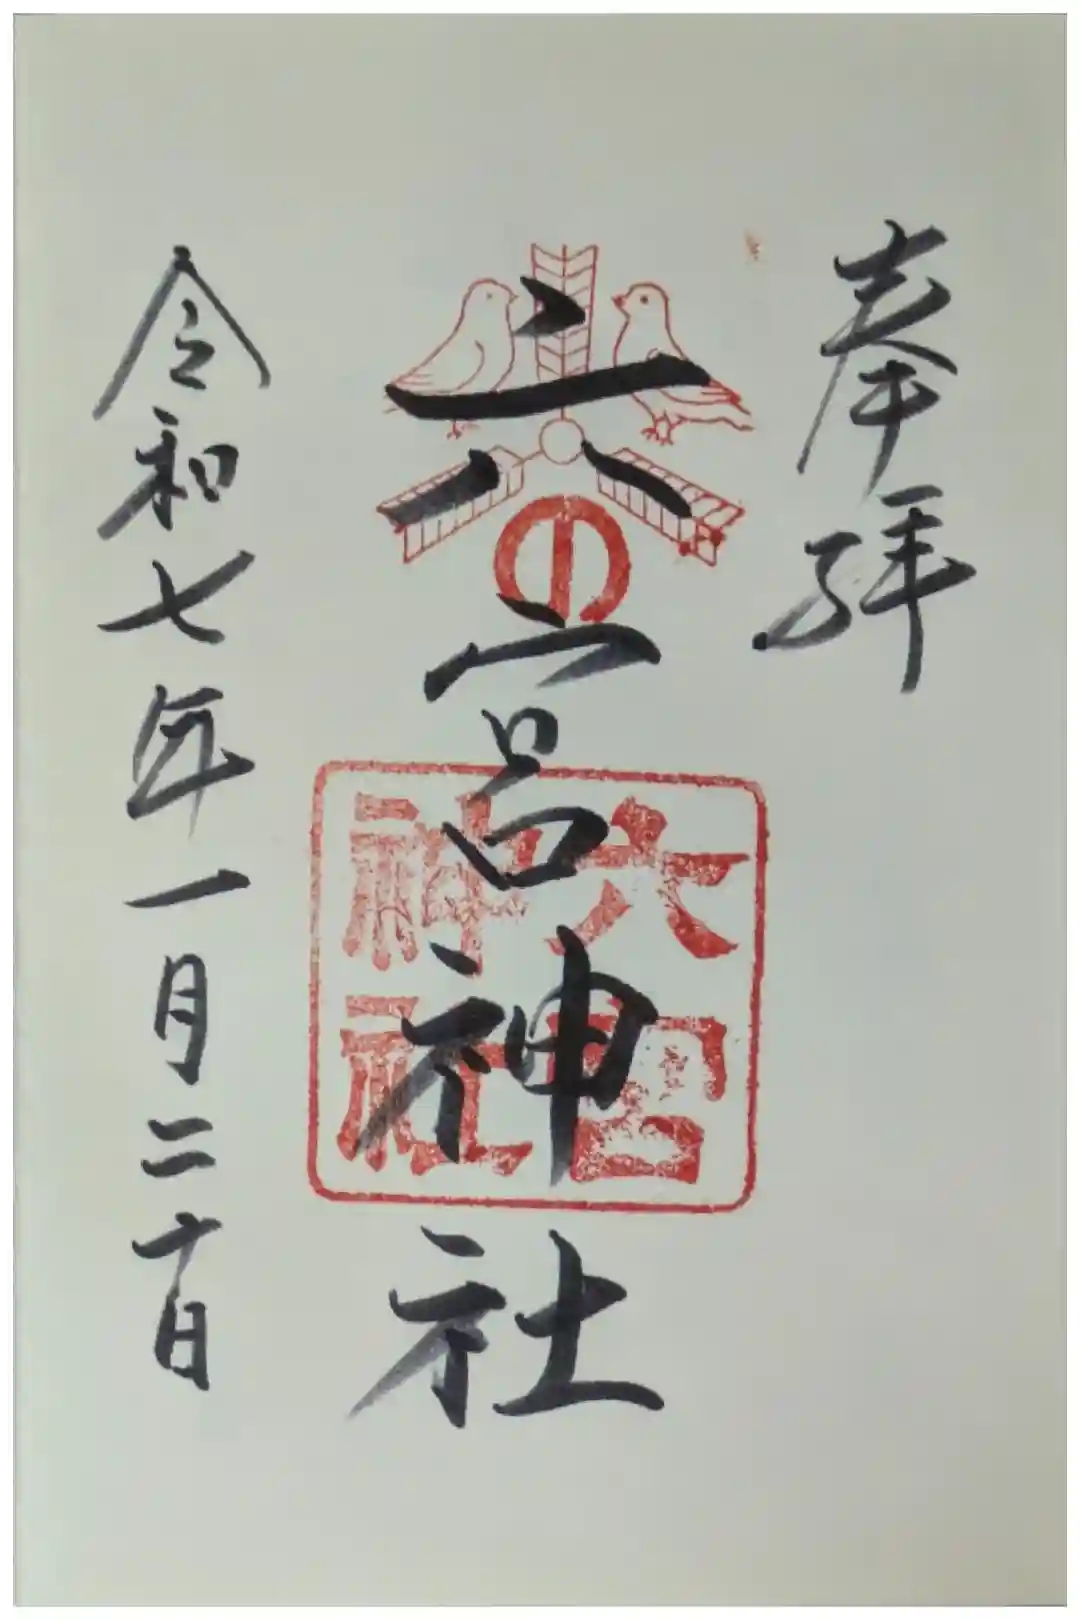 奉拝
六の宮神社
六宮神社
令和七年一月二十日